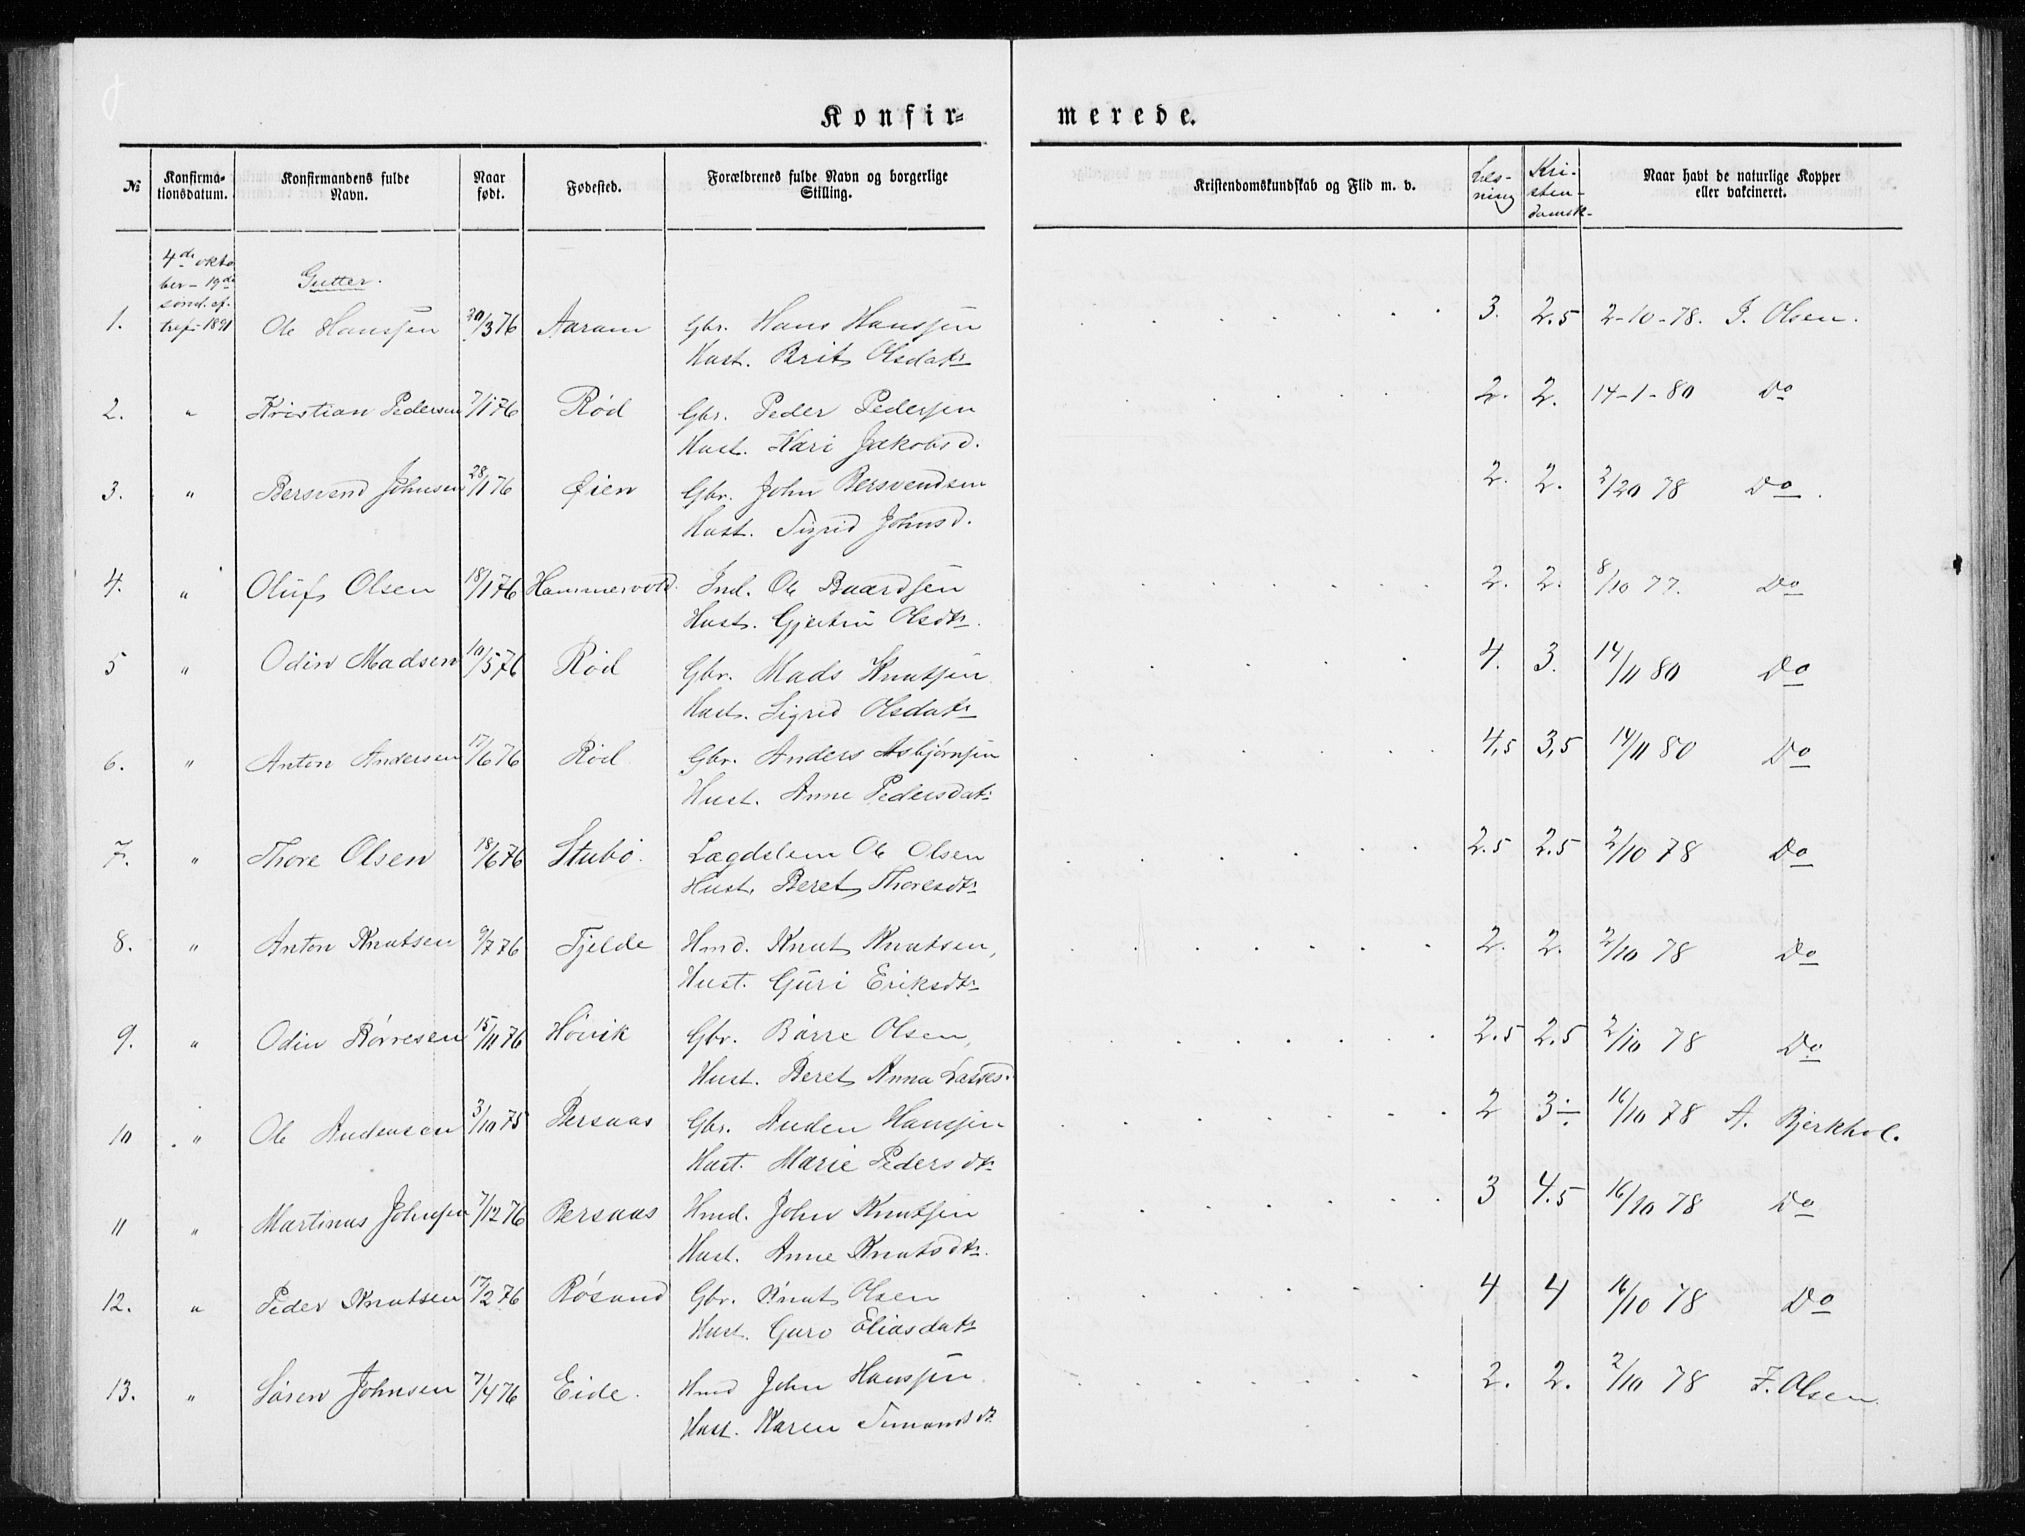 Konfir=
merede.
№
Konfirma-
tionsdatum.
Konfirmandens fulde
Navn.
Naar
født.
Fødested.
Forældrenes fulde Navn og borgerlige
Stilling.
Kristendomskundskab og Flid m. v.
Læs-
ning
Kri-
sten-
domsk-
Naar havt de naturlige Kopper
eller vakcineret.
4de okto
ber - 19de
sønd. ef.
tref - 1891
Gutter.
1. Ole Hanssen 20/3 76 Aaram Gbr. Hans Hanssen 3. 2.5 2-10-78. J. Olsen.
Hust. Brit Olsdatr
2. " Kristian Pedersen 7/1 76 Rød Gbr. Peder Pedersen 2. 2. 14-1-80 Do
Hust. Kari Jakobsd.
3. " Bersvend Johnsen 28/1 76 Øien Gbr. John Bersvendsen 2. 2. 2/20 78 Do.
Hust. Sigrid Johnsd.
4. " Oluf Olsen 18/1 76 Hammervold. Ind. Ole Baardsen 2. 2. 8/10 77. Do
Hust. Gjertru Olsdtr.
5 " Odin Madsen 10/5 76 Rød Gbr. Mads Knutsen 4. 3. 14/11 80 Do
Hust. Sigrid Olsdatr
6. " Anton Andersen 17/6 76 Rød. Gbr. Anders Asbjørnsen 4,5 3,5 14/11 80 Do
Hust. Anne Pedersdatr
7. " Thore Olsen 18/6 76 Stubø. Lægdslem Ole Olsen 2.5 2.5 2/10 78 Do
Hust. Beret Thoresdtr
8. " Anton Knutsen 9/7 76 Tjelde Hmd. Knut Knutsen, 2. 2. 2/10 78 Do
Hust. Guri Eriksdtr
9. " Odin Børresen 15/11 76 Høvik Gbr. Børre Olsen, 2.5 2.5 2/10 78 Do
Hust. Beret Anna
10 " Ole Audensen 3/10 75 Bersaas Gbr. Auden Hanssen 2 3÷ 16/10 78 A. Bjerkhol.
Hust. Marie Pedersdtr
11 " Martinus Johnsen 7/12 76 Bersaas Hmd. John Knutsen 3 4.5 16/10 78 Do
Hust. Anne Knutsdtr.
12. " Peder Knutsen 17/2 76 Røsand Gbr. Knut Olsen 4 4 16/10 78 Do
Hust. Guro Eliasdatr
13. " Søren Johnsen 7/4 76 Eide. Hmd John Hanssen. 2. 2. 2/10 78 J. Olsen
Hust. Karen Simonsdt